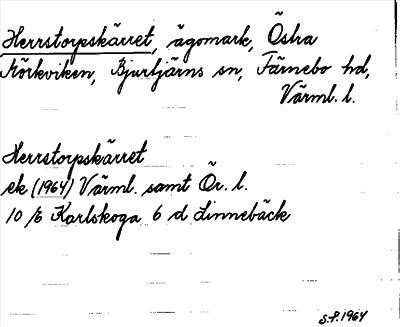 Herrstorpskärret, ägomark, Östra
Mörkviken, Bjurtjärns sn, Färnebo hd,
Värml. l.
Herrstorpskärret
ek (1964) Värml. samt Ör. l.
10 /6 Karlskoga 6 d Linnebäck
S.P. 1964